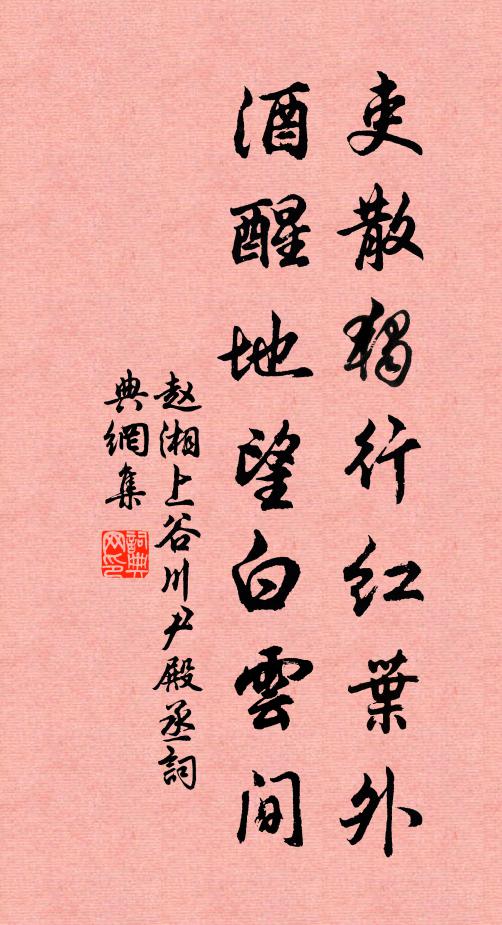 吏散獨行红葉外
酒醒地望白雲间
赵湘上谷川尹殿丞詞
典網集
詞典网印